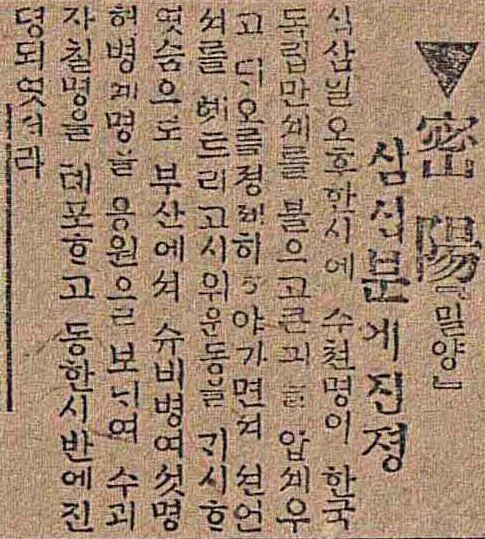 ▼密陽『밀양』
삼십분에진졍
십삼일오후한시에 수쳔명이 한국
독립만세를 불으고큰긔를 압세우
고 디오를졍졔히 ᄒᆞ야가면져 션언
셔를 헤드리고시위운동을 ᄀᆡ시ᄒᆞ
엿슴으로 부산에셔 슈비병여섯명
헌병 명을 응원으로 보ᄂᆡ여 수괴
자칠명을 톄포ᄒᆞ고 동한시반에진
뎡되엿더라